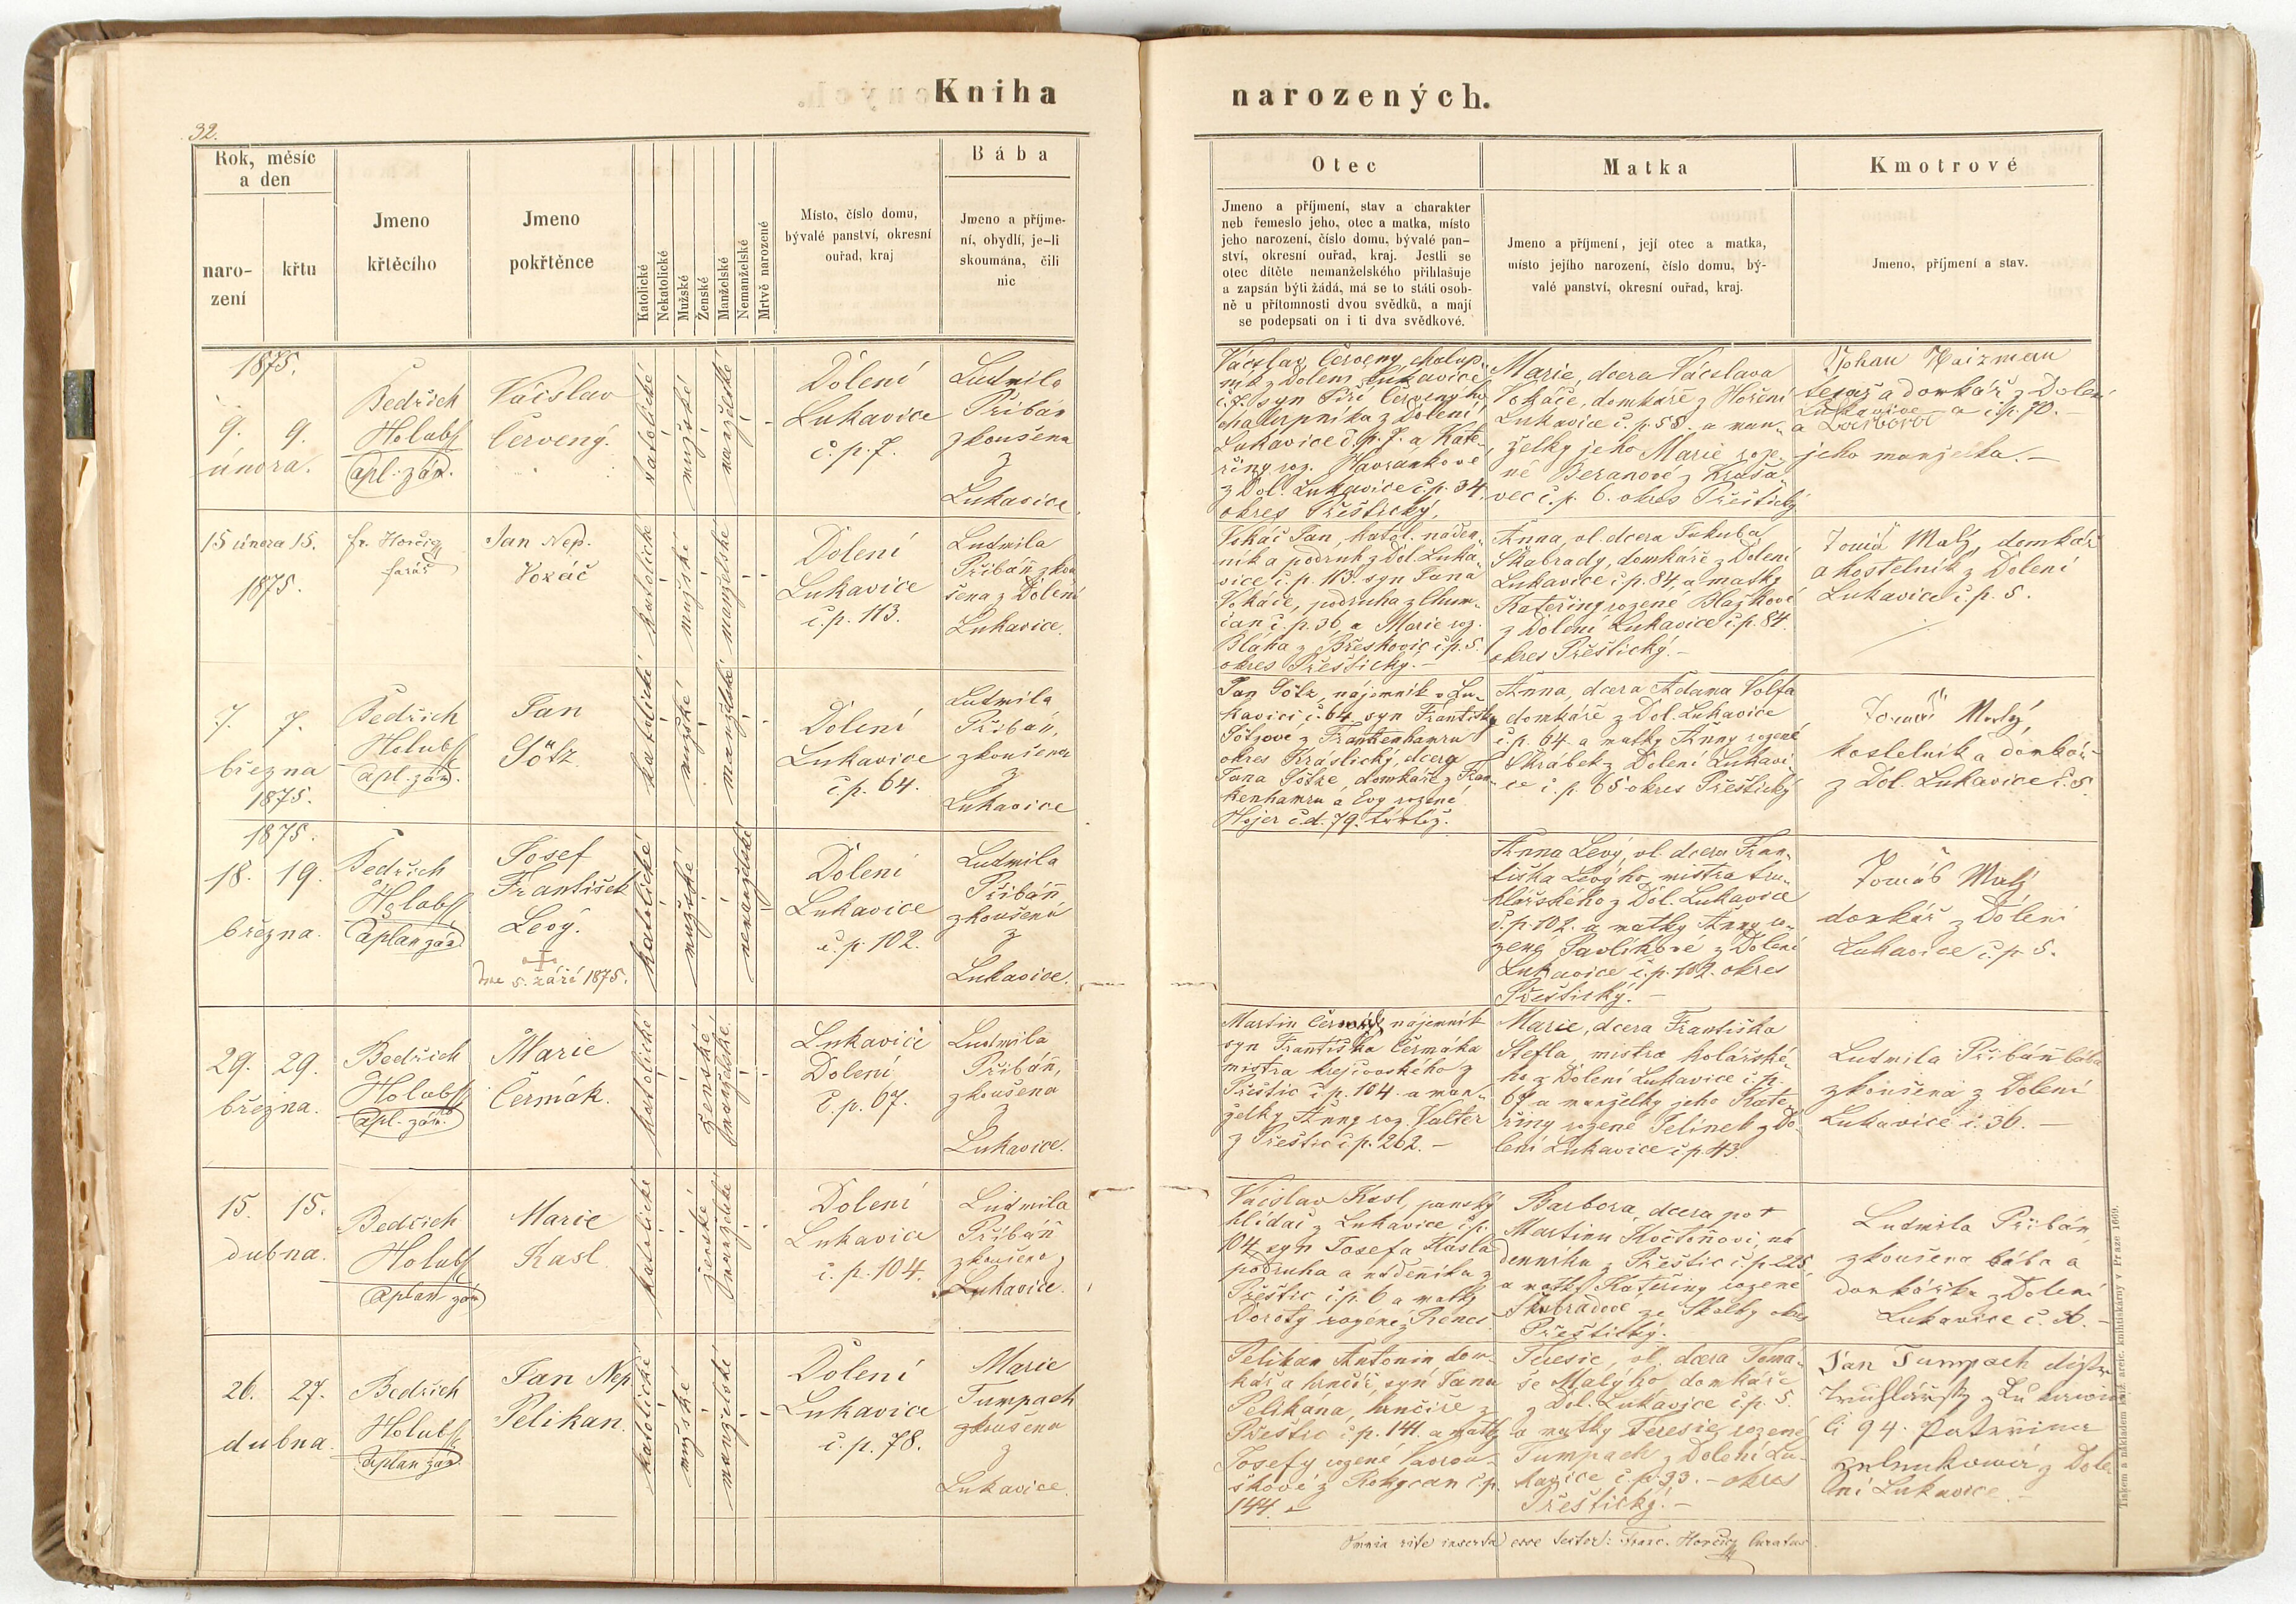 Kniha
narozených.
32.
Rok, měsíc
a den
naro-
zení
křtu
Jmeno
křtěcího
Jmeno
pokřtěnce
Katolické
Nekatolické
Mužské
Ženské
Manželské
Nemanželské
Mrtvě narozené
Místo, číslo domu,
bývalé panství, okresní
ouřad, kraj
Bába
Jmeno a příjme-
ní, obydlí, je-li
skoumána, čili
nic
Otec
Jmeno a příjmení, stav a charakter
neb řemeslo jeho, otec a matka, místo
jeho narození, číslo domu, bývalé pan-
ství, okresní ouřad, kraj. Jestli se
otec dítěte nemanželského přihlašuje
a zapsán býti žádá, má se to státi osob-
ně u přítomnosti dvou svědků, a mají
se podepsati on i ti dva svědkové.
Matka
Jmeno a příjmení, její otec a matka,
místo jejího narození, číslo domu, bý-
valé panství, okresní ouřad, kraj.
Kmotrové
Jmeno, příjmení a stav.
1875.
9. 9.
února.
Bedřich
Holub
Václav
Červený.
katolické
mužské
manželské
Dolení
Lukavice
č. p. 7.
Ludmila
Přibáň
zkoušena
z
Lukavice
Václav Červeny, chalup-
ník z Dolení Lukavice
č. 7. syn Jiří Červenyho
chalupníka z Dolení
Lukavice č. p. 7. a Kate-
řiny roz. Havránkové
z Dol. Lukavice č. p. 34.
okres Přeštický.
Marie, dcera Václava
Vokáče, domkáře z Hoření
Lukavice č. p. 58. a man-
želky jeho Marie roze-
né Beranové z Krasa-
vec č. p. 6. okres Přeštický
Johan
tesař a domkář z Dolení
Lukavice č. p. 70.
a Barbora
jeho manželka.
15 února 15.
1875.
fr. Horčic
farář
Jan Nep.
Vokáč
katolické
mužské
manželské
Dolení
Lukavice
č. p. 113.
Ludmila
Přibáň zkou
šena z Dolení
Lukavice.
Vokáč Jan, katol. náden-
ník a podruh z Dol. Luka-
vice č. p. 113. syn Jana
Vokáče, podruha z Chlum-
čan č. p. 36, a Marie roz.
Bláha z Břeskovic č. p. 5.
okres Přeštický.
Anna, vl. dcera Jakuba
Škabrady, domkáře z Dolení
Lukavice č. p. 84, a matky
Kateřiny rozené Blažkové
z Dolení Lukavice č. p. 84.
okres Přeštický.
Tomáš Malý, domkář
a kostelník z Dolení
Lukavice č. p. 5.
7. 7.
března
1875.
Bedřich
Holub
Jan
Götz.
katolické
mužské
manželské
Dolení
Lukavice
č. p. 64.
Ludmila
Přibáň,
zkoušena
z
Lukavice
Jan Götz, nájemník v Lu-
kavici č. 64, syn Františky
Götzove z Frankenhamru
okres Kraslický, dcera
Jana Götze, domkáře z Fran-
kenhamru a Evy rozené
Hojer č. d. 79. tamtéž.
Anna, dcera Adama Volfa
domkáře z Dol. Lukavice
č. p. 64. a matky Anny rozené
Škrábek z Dolení Lukavi-
ce č. p. 65 okres Přeštický
Tomáš Malý,
kostelník a domkář
z Dol. Lukavice č. 5.
1875.
18. 19.
března.
Bedřich
Holub
kaplan
Josef
František
Levý.
dne 5. září 1875.
katolické
mužské
nemanželské
Dolení
Lukavice
č. p. 102.
Ludmila
Přibáň
zkoušená
z
Lukavice.
Anna Levý, vl. dcera Fran-
tiška Levýho, mistra tru-
hlářského z Dol. Lukavice
č. p. 102. a matky Anny ro-
zené Pavlíkové z Dolení
Lukavice č. p. 102. okres
Přeštický.
Tomáš Malý
domkář z Dolení
Lukavice č. p. 5.
29. 29.
března.
Bedřich
Holub
Marie
Čermák.
katolické
ženské
manželské.
Lukavice
Dolení
č. p. 67.
Ludmila
Přibáň,
zkoušena
z
Lukavice.
Martin Čermák, nájemník
syn Františka Čermáka
mistra krejčovského z
Přeštic č. p. 104. a man-
želky Anny roz. Valter
z Přeštic č. p. 262.
Marie, dcera Františka
Štefla, mistra kolářské-
ho z Dolení Lukavice č. p.
67 a manželky jeho Kate-
řiny rozené Jelínek z Do-
lení Lukavice č. p. 43.
Ludmila Přibáň bába
zkoušena z Dolení
Lukavice č. 36.
15. 15.
dubna.
Bedřich
Holub
kaplan
Marie
Kasl.
katolické
ženské
manželské
Dolení
Lukavice
č. p. 104.
Ludmila
Přibáň
zkoušena
Lukavice.
Václav Kasl, panský
hlídač z Lukavice č. p.
104, syn Josefa Kasla
podruha a nádenníka z
Přeštic č. p. 6 a matky
Doroty rozené z Řenec.
Barbora, dcera po †
Martinu Kočtoňovi, ná
denníku z Přeštic č. p. 225
a matky Kateřiny rozené
Škabradové ze Skalky okres
Přeštický.
Ludmila Přibáň,
zkoušena bába a
domkářka z Dolení
Lukavice č. 36.
26. 27.
dubna
Bedřich
Holub
kaplan
Jan Nep.
Pelikan.
katolické
mužské
manželské
Dolení
Lukavice
č. p. 78.
Marie
Tumpach
zkoušena
z
Lukavice.
Pelikan Antonin, dom-
kář a hrnčíř, syn Jana
Pelikana, hrnčíře z
Přeštic č. p. 141. a matky
Josefy rozené
z Rokycan č. p.
144.
Teresie, vl. dcera Toma-
še Malýho, domkáře
z Dol. Lukavice č. p. 5.
a matky Teresie rozené
Tumpach z Dolení Lu-
kavice č. p. 93. okres
Přeštický.
Jan Tumpach
č 94.
z Dole
ní Lukavice.
Omnia rite inserta esse testor: Franc. Horčic Curatus.
Tiskem a nákladem kníž. arcib. knihtiskárny v Praze 1669.